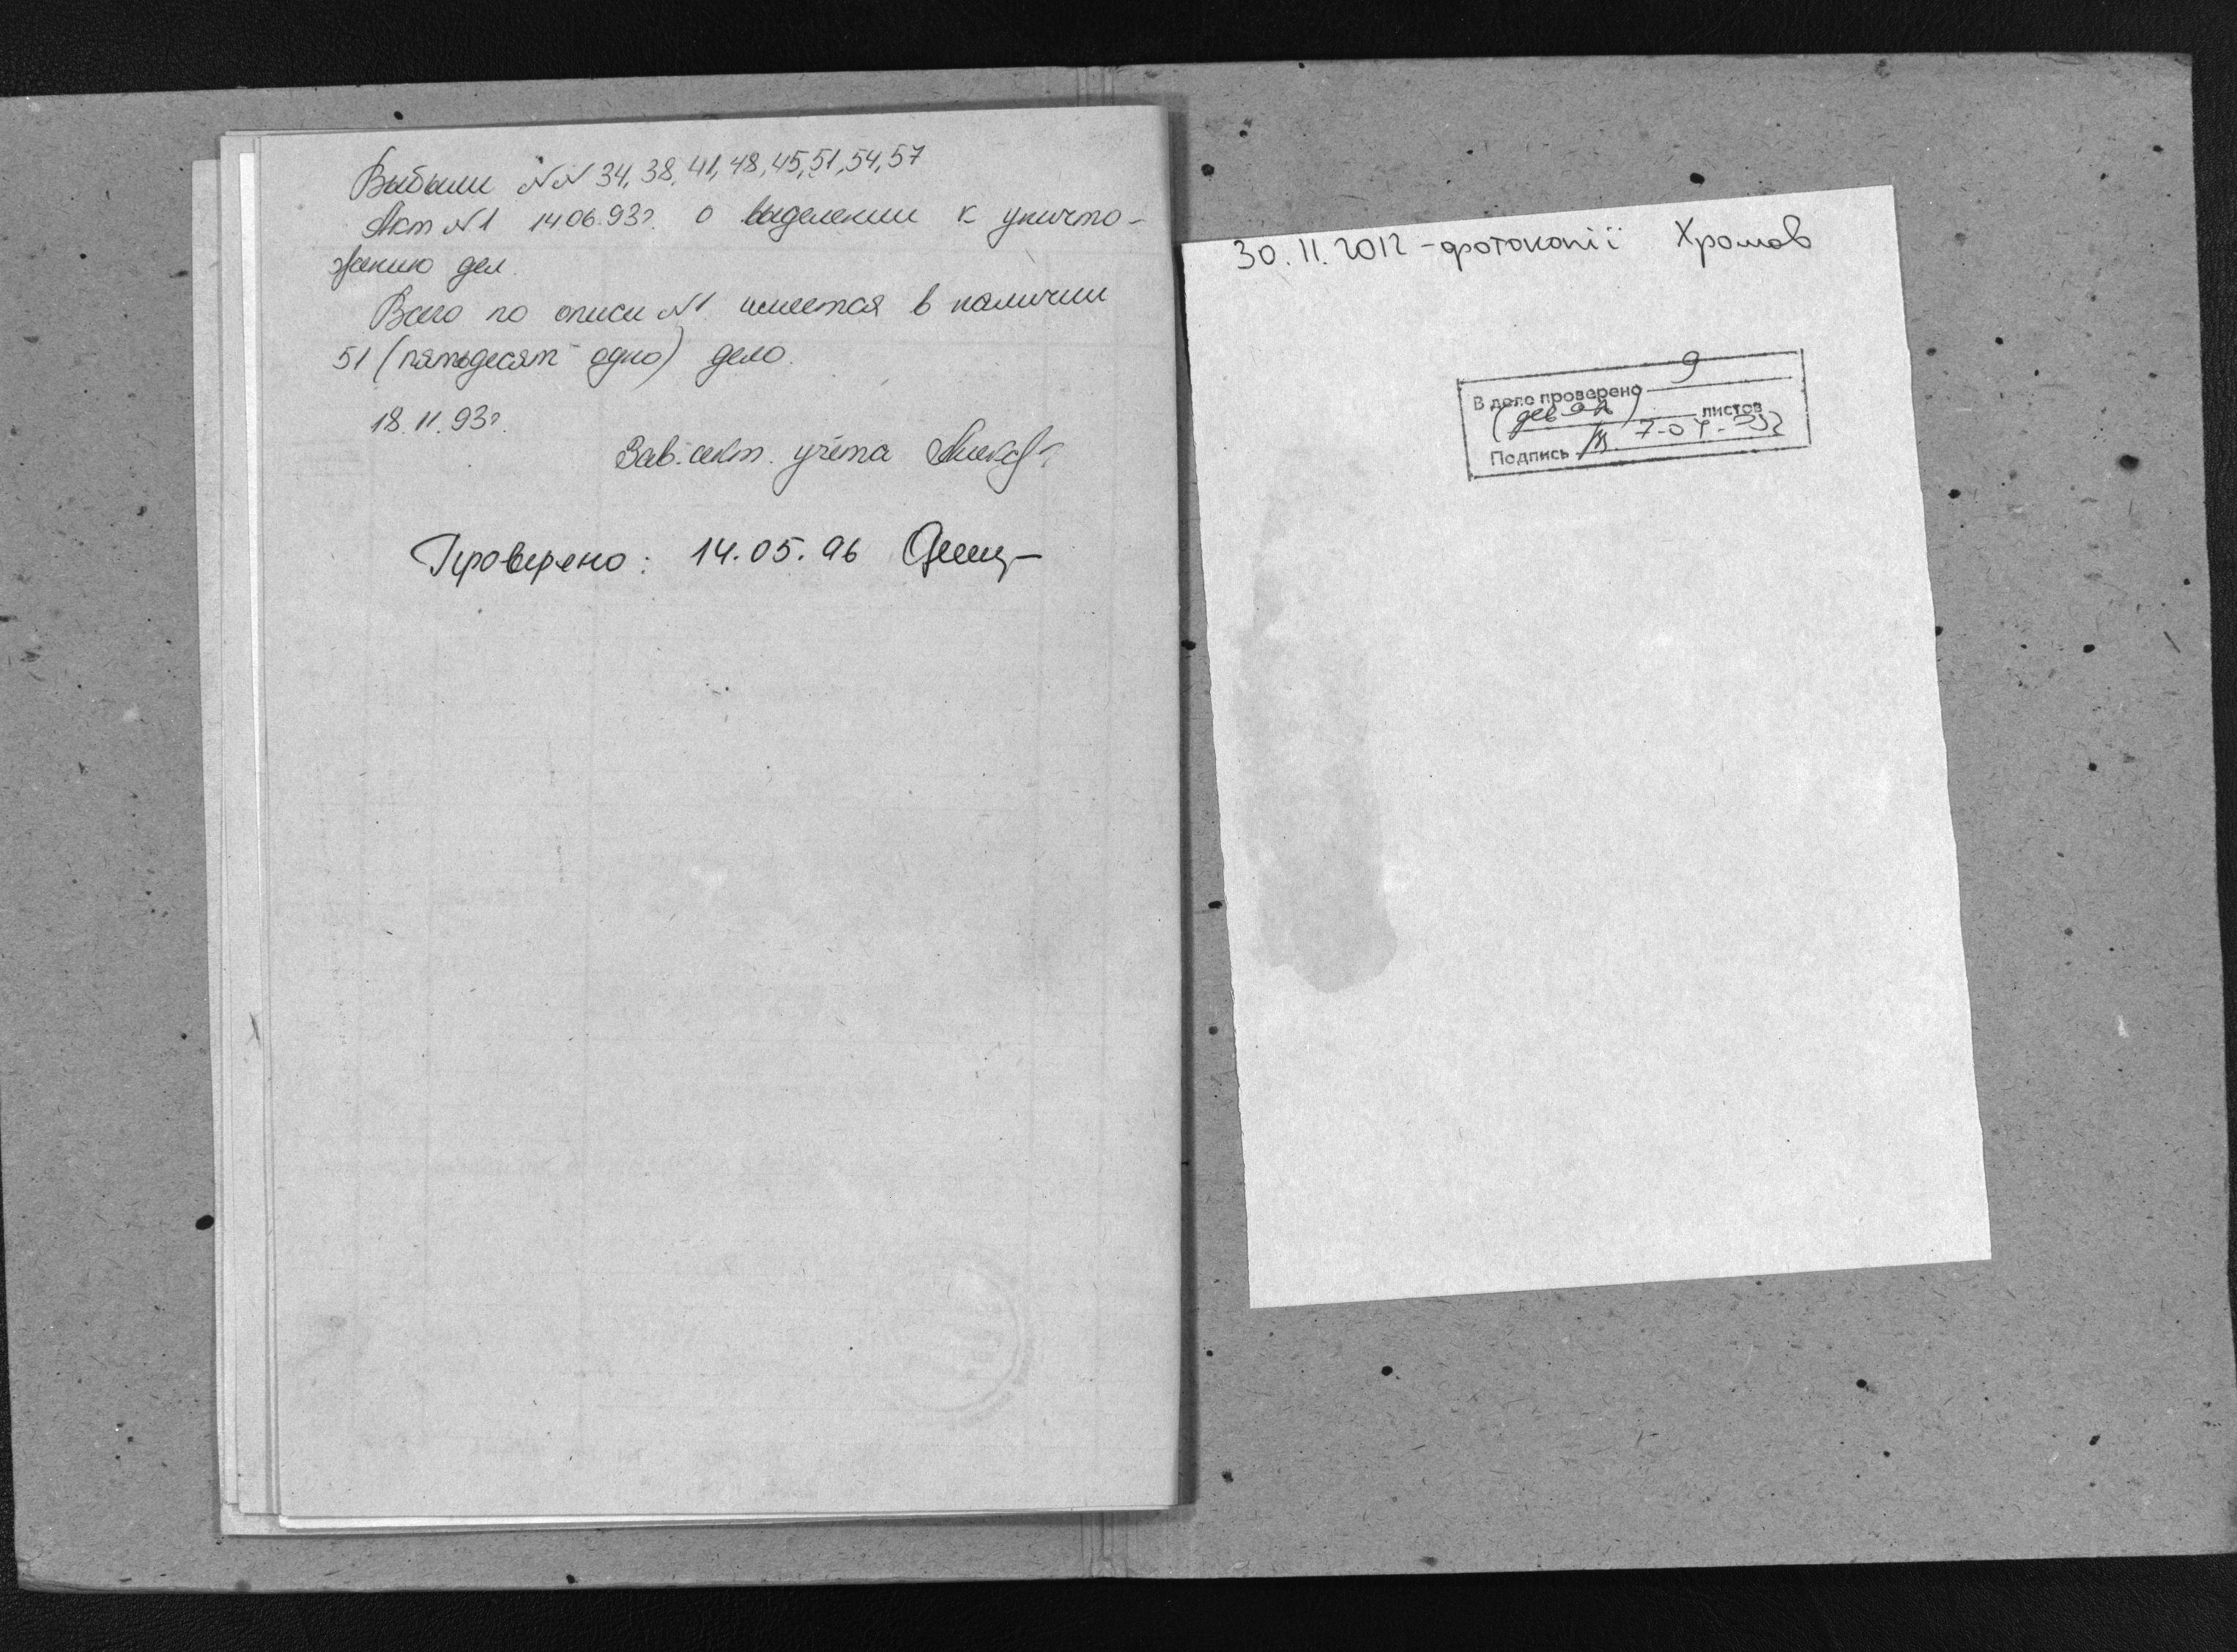 Выбыли NN 34, 38, 41, 48, 45, 51, 54, 57
Акт N1 14 06.93г. о выделении к уничто-
жению дел.
Всего по описи N1 имеется в наличии
51 (пятьдесят одно) дело.
18.11.93г.
Зав. сект. учёта
Проверено: 14.05.96
30.11.2012 - фотокопії Хромов
В дело проверено 9
(девять) листов
Подпись